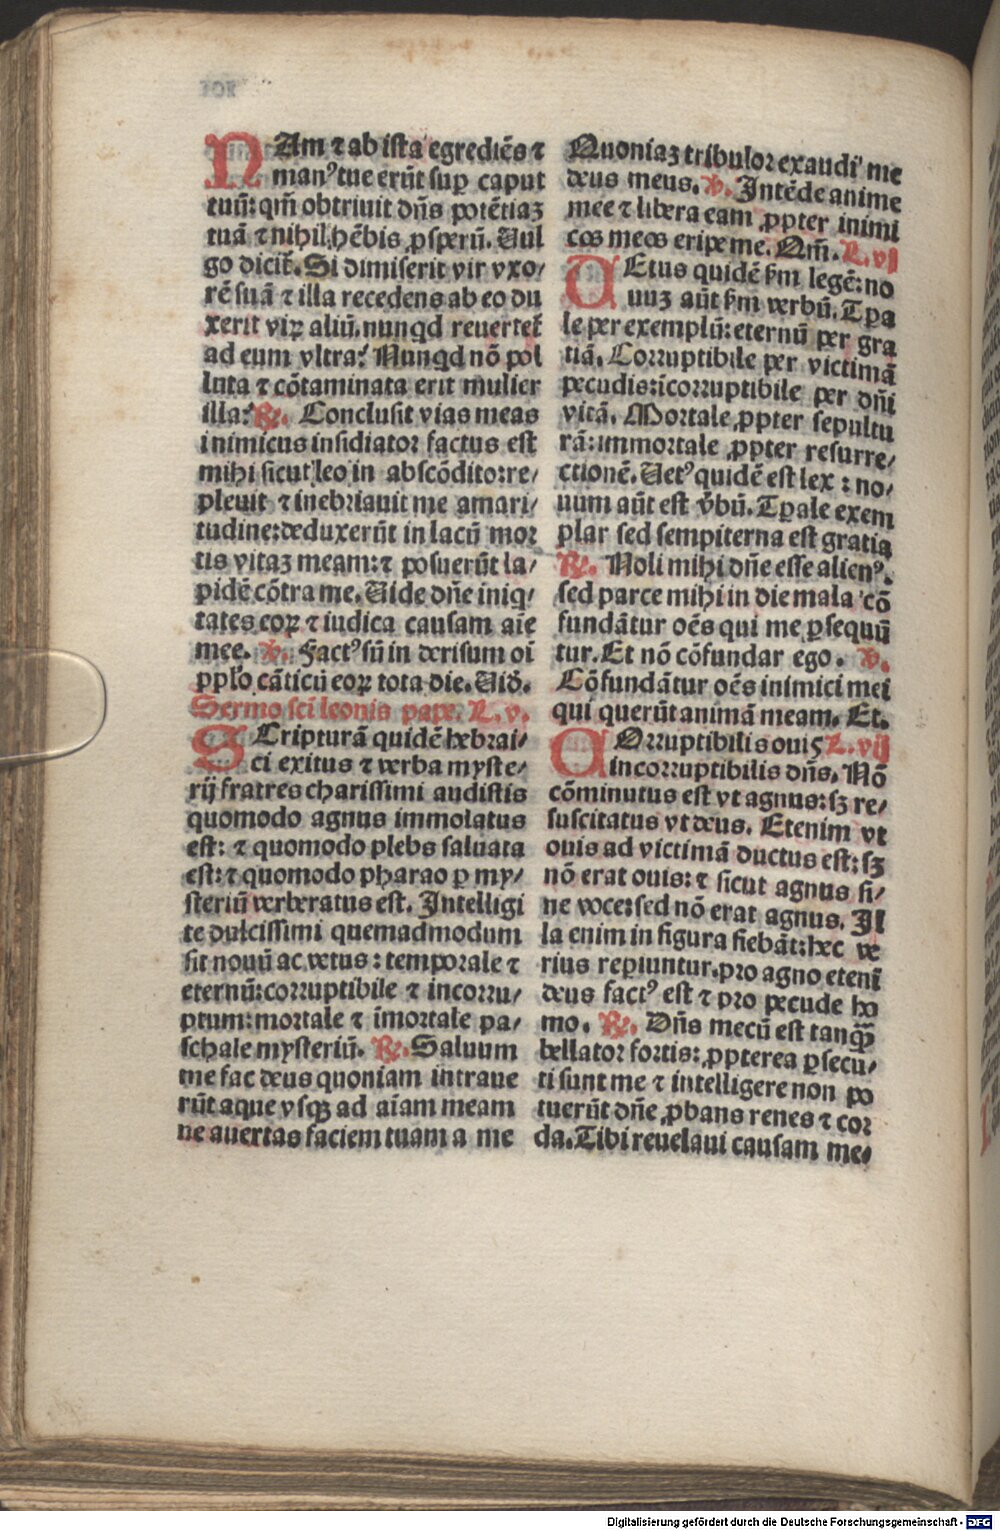 NAm ⁊ ab ista egrediēs ⁊
manꝰ tue erūt suꝑ caput
tuū: qm̄ obtriuit dn̄s potētiaꝫ
tuā ⁊ nihil hēbis ꝓsperū. Uul
go dicit̃. Si dimiserit vir vxo/
rē suā ⁊ illa recedens ab eo du
xerit viꝝ aliū. nunqd reuertet̃
ad eum vltra? Nunqd nō pol
luta ⁊ cōtaminata erit mulier
illa? ℟. Conclusit vias meas
inimicus insidiator factus est
mihi sicut leo in abscōdito: re/
pleuit ⁊ inebriauit me amari/
tudine: deduxerūt in lacū mor
tis vitaꝫ meam: ⁊ posuerūt la/
pidē cōtra me. Uide dn̄e iniq/
tates eoꝝ ⁊ iudica causam aīe
mee. ℣. Factꝰ sū in derisum oī
pplo cāticū eoꝝ tota die. Uid̄.
Sermo sci leonis pape. L. v.
SCripturā quidē hebrai/
ci exitus ⁊ verba myste/
rij fratres charissimi audistis
quomodo agnus immolatus
est: ⁊ quomodo plebs saluata
est: ⁊ quomodo pharao ꝑ my/
steriū verberatus est. Intelligi
te dulcissimi quemadmodum
sit nouū ac vetus: temporale ⁊
eternū: corruptibile ⁊ incorru/
ptum: mortale ⁊ īmortale pa/
schale mysteriū. ℟. Saluum
me fac deus quoniam intraue
rūt aque vsqꝫ ad aīam meam
ne auertas faciem tuam a me
Quoniaꝫ tribulor exaudi me
deus meus. ℣. Intēde anime
mee ⁊ libera eam ꝓpter inimi
cos meos eripe me. Qm̄. L. vj
UEtus quidē ẜm legē: no
uuꝫ aūt ẜm verbū. Tꝑa
le per exemplū: eternū per gra
tiā. Corruptibile per victimā
pecudis: īcorruptibile per dn̄i
vitā. Mortale ꝓpter sepultu
rā: immortale ꝓpter resurre/
ctionē. Uetꝰ quidē est lex: no/
uum aūt est v̄bū. Tꝑale exem
plar sed sempiterna est gratia
℟. Noli mihi dn̄e esse alienꝰ.
sed parce mihi in die mala cō
fundātur oēs qui me ꝑsequū
tur. Et nō cōfundar ego. ℣.
Cōfundātur oēs inimici mei
qui querūt animā meam. Et.
COrruptibilis ouis L. vij
incorruptibilis dn̄s. Nō
cōminutus est vt agnus: sꝫ re/
suscitatus vt deus. Etenim vt
ouis ad victimā ductus est: sꝫ
nō erat ouis: ⁊ sicut agnus si/
ne voce: sed nō erat agnus. Il
la enim in figura fiebāt: hec ve
rius reꝑiuntur. pro agno etenī
deus factꝰ est ⁊ pro pecude ho
mo. ℟. Dn̄s mecū est tanqꝫ̄
bellator fortis: ꝓpterea ꝑsecu/
ti sunt me ⁊ intelligere non po
tuerūt dn̄e ꝓbans renes ⁊ cor
da. Tibi reuelaui causam me/
Digitalisierung gefördert durch die Deutsche Forschungsgemeinschaft - DFG